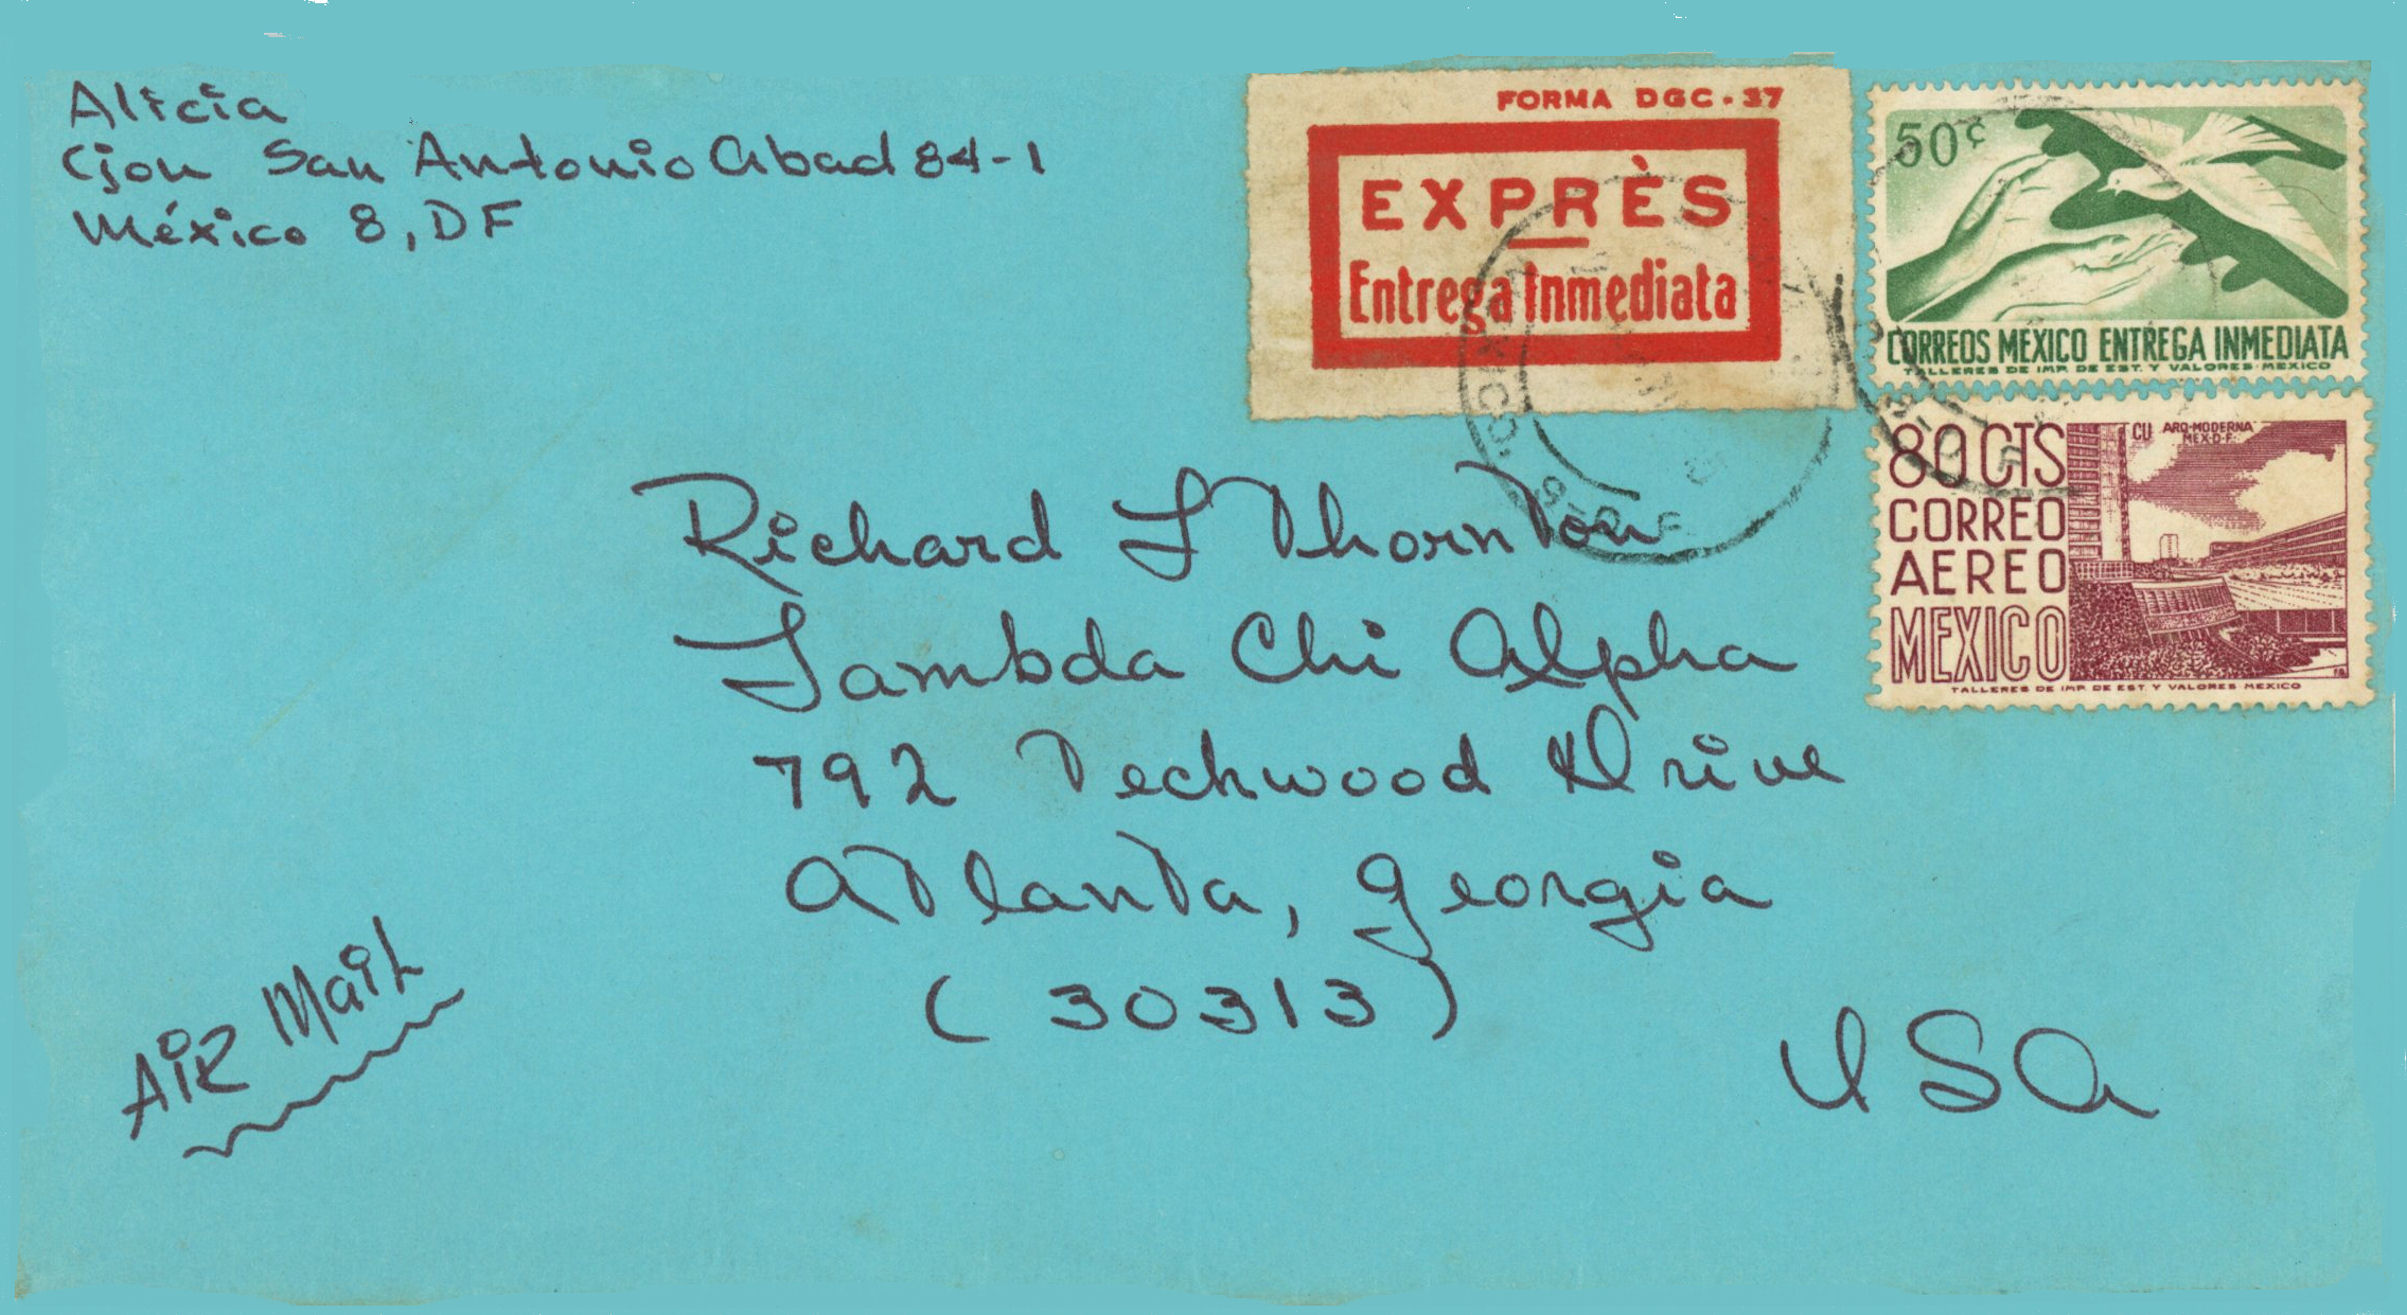 Alicia
Cjon San Antonio Abad 84-1
México 8, DF
FORMA DGC-37
EXPRÈS
Entrega Inmediata
50¢
CORREOS MEXICO ENTREGA INMEDIATA
TALLERES DE IMP. DE EST. Y VALORES-MEXICO
80 CTS
CORREO
AEREO
MEXICO
CU ARQ-MODERNA
MEX-D-F-
TALLERES DE IMP. DE EST. Y VALORES MEXICO
Richard L Thornton
Lambda Chi Alpha
792 Techwood Drive
Atlanta, Georgia
(30313)
USA
AIR MAIL